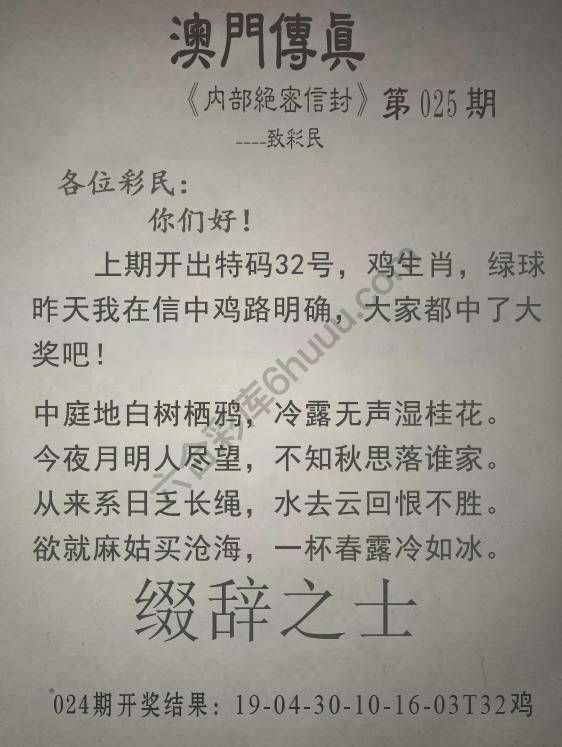 澳門傳眞
《内部絕密信封》第025期
----致彩民
各位彩民:
你们好!
上期开出特码32号，鸡生肖，绿球
昨天我在信中鸡路明确，大家都中了大
奖吧!
中庭地白树栖鸦，冷露无声湿桂花。
今夜月明人尽望，不知秋思落谁家。
从来系日乏长绳，水去云回恨不胜。
欲就麻姑买沧海，一杯春露冷如冰。
缀辞之士
024期开奖结果: 19-04-30-10-16-03T32鸡
六合彩库6huuu.com